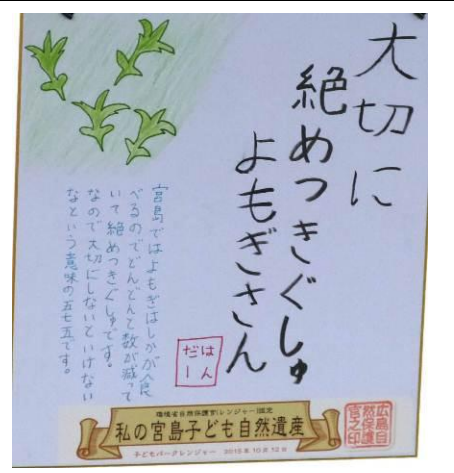 大切に
絶めつきぐしゅ
よもぎさん
宮島ではよもぎはしかが食
べるのでどんどんと数が減って
いて絶めつきぐしゅです。
なので大切にしないといけない
なという意味の五七五です。
はん
だー
環境省自然保護官(レンジャー)認定
私の宮島子ども自然遺産
子どもパークレンジャー 2015年10月12日
広島自
然保護
官之印